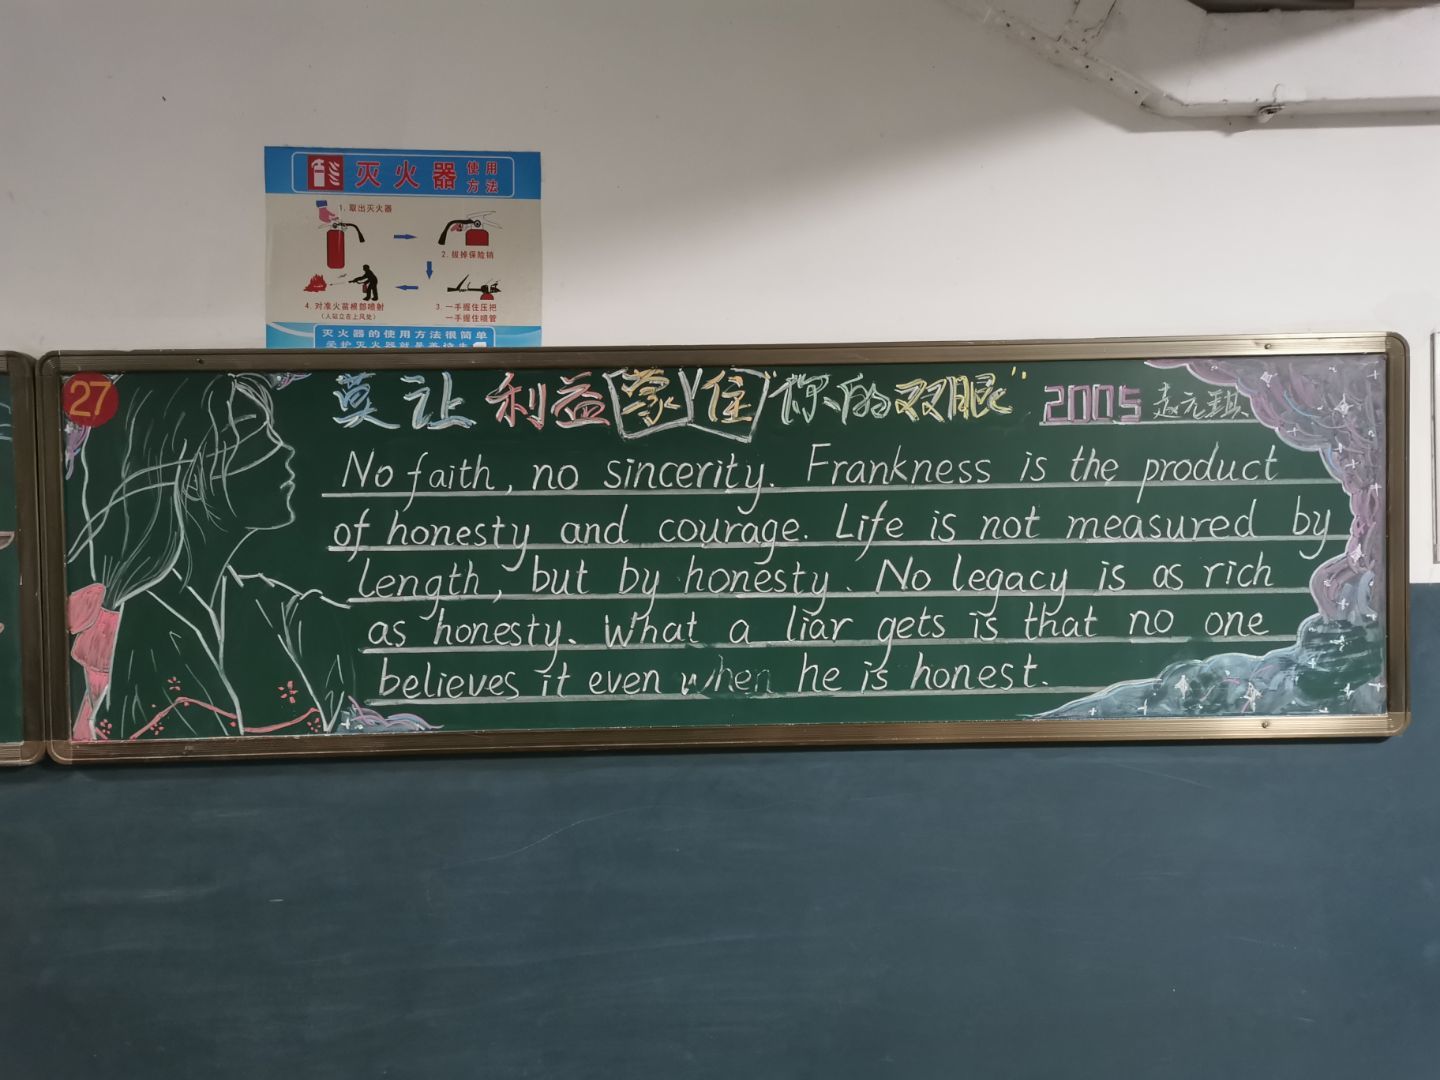 灭火器 使用方法
1. 取出灭火器
2. 拔掉保险销
4. 对准火苗根部喷射
(人站立在上风处)
3. 一手握住压把
一手握住喷管
灭火器的使用方法很简单
27
莫让利益蒙住"你的双眼" 2005
No faith, no sincerity. Frankness is the product
of honesty and courage. Life is not measured by
length, but by honesty. No legacy is as rich
as honesty. What a liar gets is that no one
believes it even when he is honest.